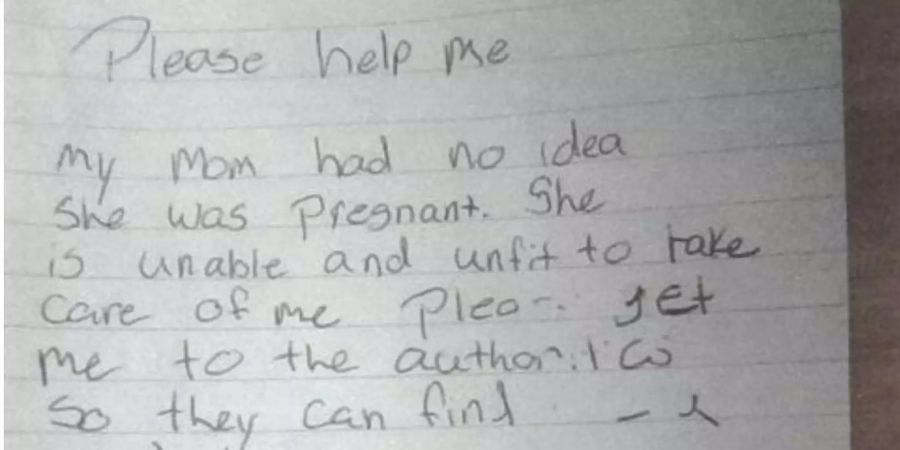 Please help me
My Mom had no idea
She was Pregnant. She
is unable and unfit to take
Care of me get
me to the
So they can find